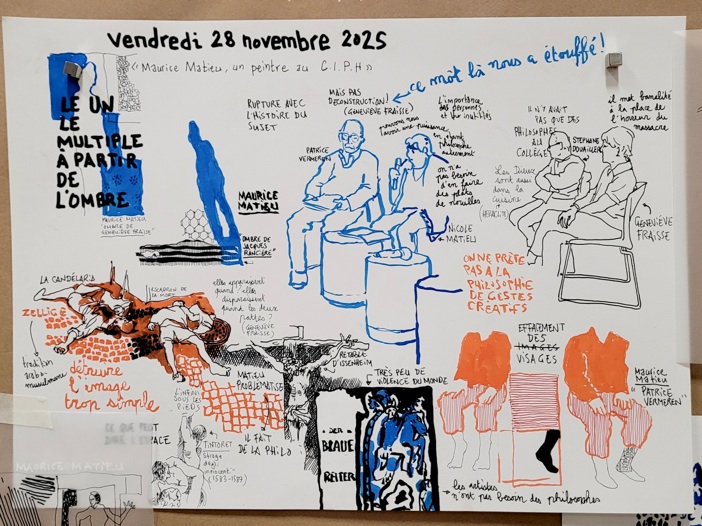 vendredi 28 novembre 2025
« Maurice Matieu, un peintre au C.I.P.H »
ce mot là nous a étouffé!
LE UN
LE
MULTIPLE
À PARTIR
DE
L'OMBRE
MAURICE MATIEU
"OMBRE DE
GENEVIÈVE FRAISSE"
RUPTURE AVEC
L'HISTOIRE DU
SUJET
MAURICE
MATIEU
OMBRE DE
JACQUES
RANCIÈRE
MAIS PAS
DECONSTRUCTION!
(GENEVIÈVE FRAISSE)
PATRICE
VERMEREN
L'importance
des
et the inutiles
pouvons nous
une puissance
en étant
philosophe
autrement
on n'a
pas besoin
d'en faire
des plats
de nouilles
NICOLE
MATIEU
IL N'Y AVAIT
PAS QUE DES
PHILOSOPHES
AU
COLLÈGE
STEPHANE
DOUAILLER
les Dieux
sont aussi
dans la
cuisine
(HERACLITE)
il met banalité
à la place de
l'horreur du
massacre
GENEVIÈVE
FRAISSE
ON NE PRÊTE
PAS A LA
PHILOSOPHIE
DE GESTES
CREATIFS
LA CANDELARIA
ESCADRON DE
LA MORT
ZELLIGE
tradition
arabo-
musulmane
détruire
l'image
trop simple
elles apparaissent
quand? elles
disparaissent
quand les deux
portes?
(GENEVIÈVE
FRAISSE)
MATIEU
PROBLÉMATISE
L'ENFER
SOUS LES
PIEDS
IL FAIT
DE LA PHILO
TINTORET
(1583-1587)
RETABLE
D'ISSENHEIM
TRÈS PEU DE
VIOLENCE DU MONDE
DER
BLAUE
REITER
EFFACEMENT
DES
IMAGES
VISAGES
MAURICE
MATIEU
"PATRICE
VERMEREN"
les artistes
n'ont pas besoin des philosophes
CE QUE PEUT
DIRE L'ESPACE
MAURICE MATIEU